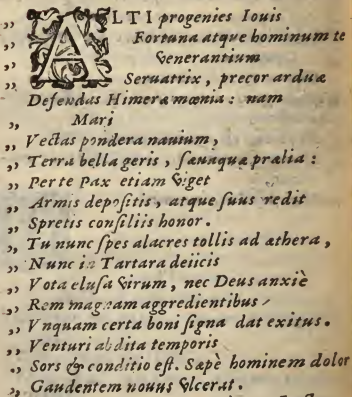 ,, ALTI progenies Iouis
,, Fortuna atque hominum te
,, Venerantium
,, Seruatrix, precor arduæ
Defendas Himeræ mœnia: nam
,, Mari
,, Vectas pondera nauium,
,, Terra bella geris, sæuaque prælia:
,, Per te Pax etiam viget
,, Armis depositis, atque suus redit
,, Spretis consiliis honor.
,, Tu nunc spes alacres tollis ad æthera,
,, Nunc in Tartara deiicis
,, Vota elusa virum, nec Deus anxiè
,, Rem magnam aggredientibus
,, Vnquam certa boni signa dat exitus.
,, Venturi abdita temporis
,, Sors & conditio est. Sæpè hominem dolor
,, Gaudentem nouus vlcerat.